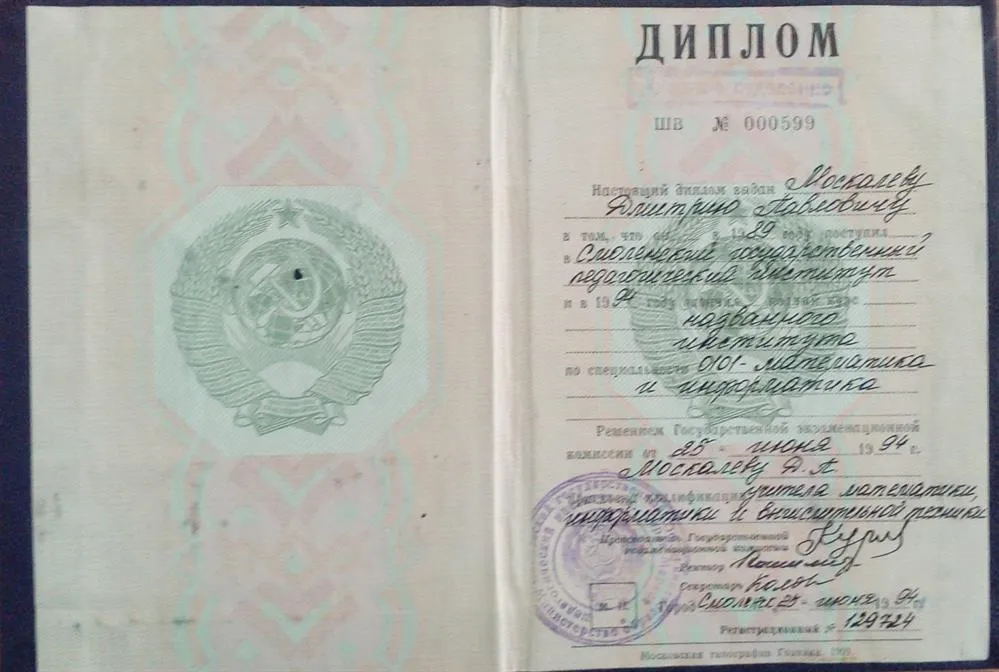 ДИПЛОМ
ШВ № 000599
Настоящий диплом выдан Москалеву
Дмитрию Павловичу
в том, что он в 1989 году поступил
в Смоленский государственный
педагогический институт
и в 1994 году окончил полный курс
названного
института
по специальности 0101-математика
и информатика
Решением Государственной экзаменационной
комиссии от 25 - июня 1994 г.
Москалеву Д.П.
присвоена квалификация учителя математики,
информатики и вычислительной техники
Председатель Государственной
экзаменационной комиссии
Ректор
Секретарь
М. П.
Город Смоленск 25 - июня 1994 г.
Регистрационный № 129724
Московская типография Гознака